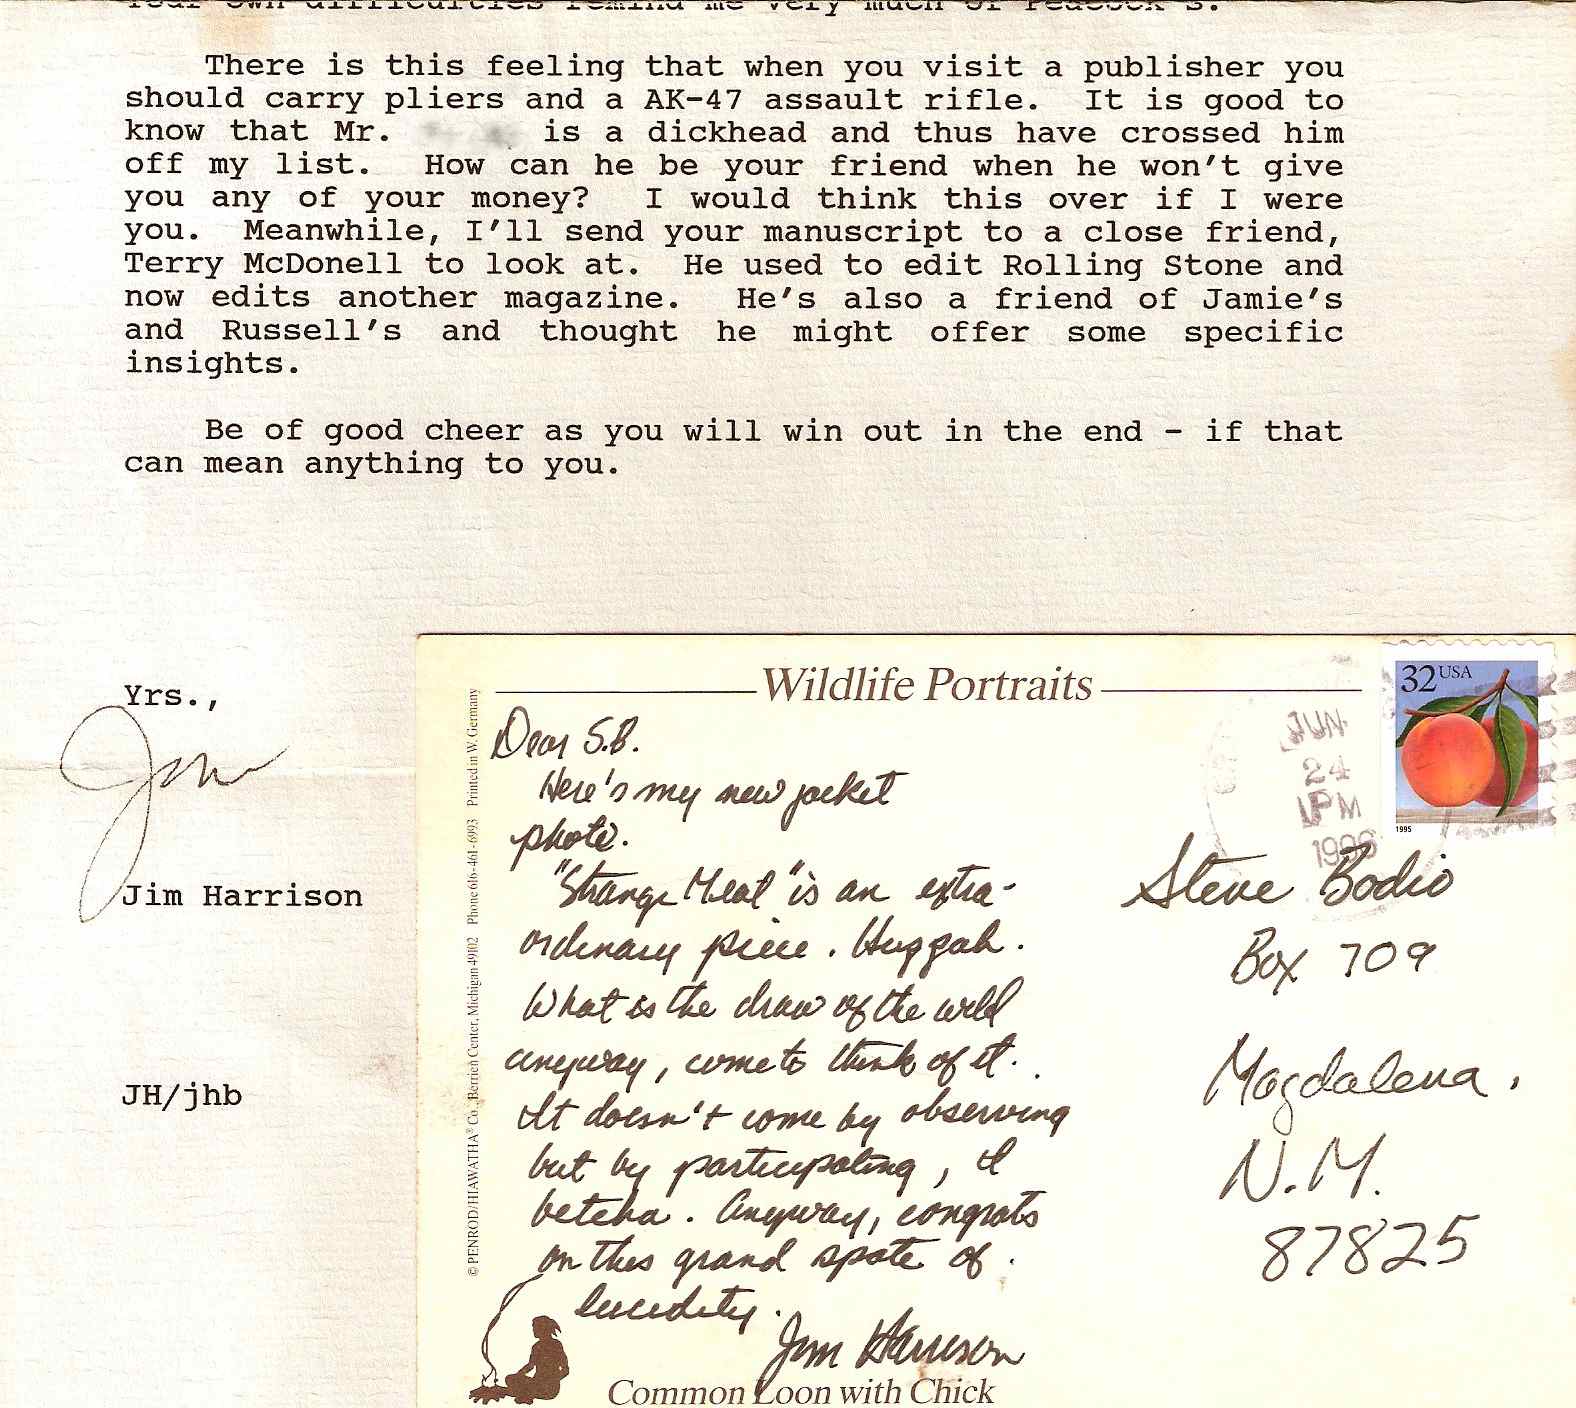 Your own difficulties remind me very much of Peacock's.
There is this feeling that when you visit a publisher you
should carry pliers and a AK-47 assault rifle. It is good to
know that Mr. is a dickhead and thus have crossed him
off my list. How can he be your friend when he won't give
you any of your money? I would think this over if I were
you. Meanwhile, I'll send your manuscript to a close friend,
Terry McDonell to look at. He used to edit Rolling Stone and
now edits another magazine. He's also a friend of Jamie's
and Russell's and thought he might offer some specific
insights.
Be of good cheer as you will win out in the end - if that
can mean anything to you.
Yrs.,
Jim
Jim Harrison
JH/jhb
Wildlife Portraits
Dear S.B.
Here's my new jacket
photo.
"Strange Meat" is an extra-
ordinary piece. Huggah.
What is the draw of the wild
anyway, come to think of it.
It doesn't come by observing
but by participating, I
betcha. Anyway, congrats
on this grand spate of
lucidity.
Jim Harrison
Common Loon with Chick
© PENROD/HIAWATHA® Co., Berrien Center, Michigan 49102 Phone 616-461-6993 Printed in W. Germany
32 USA
1995
JUN
24
1PM
1996
Steve Bodio
Box 709
Magdalena,
N.M.
87825